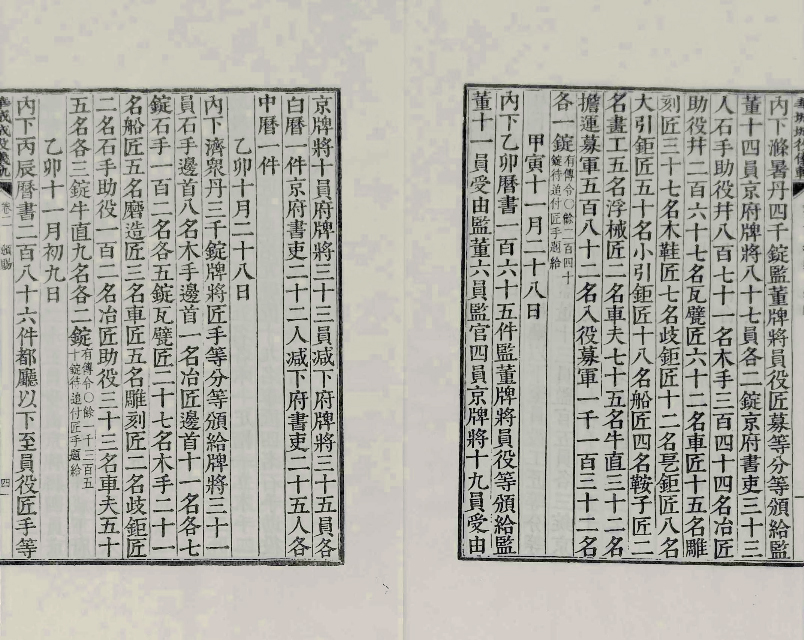 內下滌暑丹四千錠監董牌將員役匠募等分等頒給監
董十四員京府牌將八十七員各二錠京府書吏三十三
人石手助役幷八百七十一名木手三百四十四名冶匠
助役幷二百六十七名瓦甓匠六十二名車匠十五名雕
刻匠三十七名木鞋匠七名歧鉅匠十二名乬鉅匠八名
大引鉅匠五十名小引鉅匠十八名船匠四名鞍子匠二
名畫工五名浮械匠二名車夫七十五名牛直三十二名
擔運募軍五百八十二名入役募軍一千一百三十二名
各一錠有傳令〇餘二百四十錠待追付匠手題給
甲寅十一月二十八日
內下乙卯曆書一百六十五件監董牌將員役等頒給監
董十一員受由監董六員監官四員京牌將十九員受由
京牌將十員府牌將三十三員减下府牌將三十五員各
白曆一件京府書吏二十二人减下府書吏二十五人各
中曆一件
乙卯十月二十八日
內下濟衆丹三千錠牌將匠手等分等頒給牌將三十一
員石手邊首八名木手邊首一名冶匠邊首十一名各七
錠石手一百二名各五錠瓦甓匠二十七名木手二十一
名船匠五名磨造匠三名車匠五名雕刻匠二名歧鉅匠
二名石手助役一百二名冶匠助役三十三名車夫五十
五名各三錠牛直九名各二錠有傳令〇餘一千三百五十錠待追付匠手題給
乙卯十一月初九日
內下丙辰曆書二百八十六件都廳以下至員役匠手等
卷二
頒賜
四一